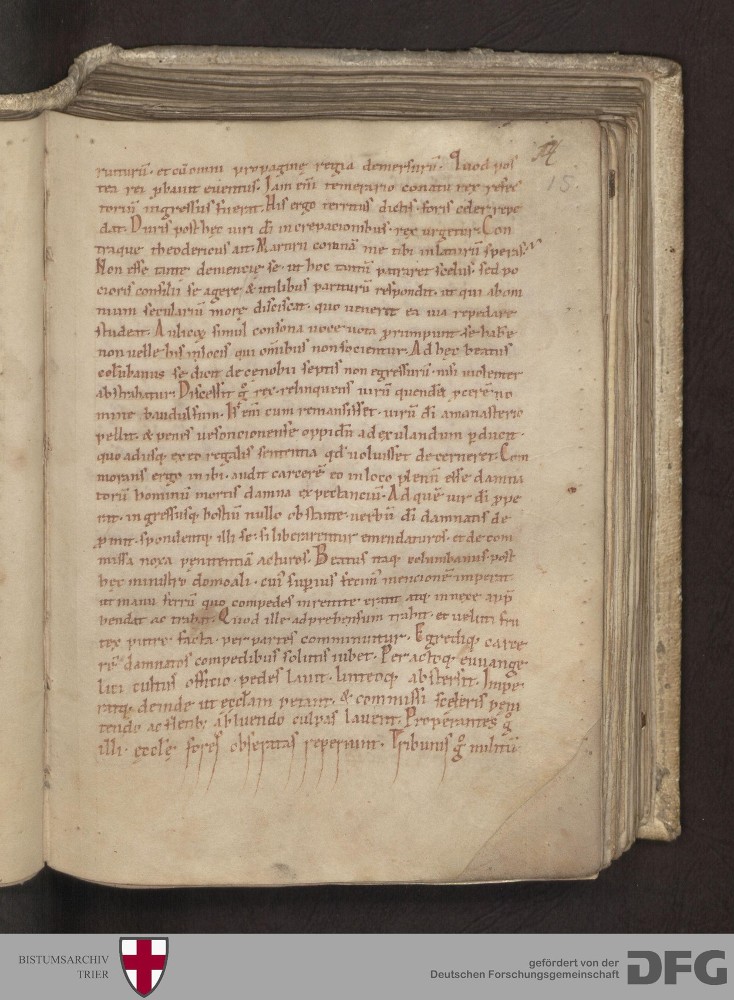 ruturū· et cū omni propagine regia demersurū· Quod pos
tea rei ꝓbavit eventus· Iam eni̅ temerario conatu rex refec
torium ingressus fuerat· His ergo territus dictis· foris celer repe
dat· Duris post hęc viri di̅ increpacionibus· rex urgetur· Con
traque theodericus ait· Martirii coronā me tibi inlaturū speras·
Non esse tante demencię se· ut hoc tantū patraret scelus· sed po
cioris consilii se agere· & utilibus parturū respondit· ut qui ab om
nium seculariū morę disciscat· quo venerit ea via repedare
studeat· Aulicoꝝ simul consona voce vota prorumpunt se habe
non velle his in locis qui om̅ibus non socientur· Ad hęc beatus
colu̅banus se dicit de cenobii septis non egressurū· nisi violenter
abstrahatur· Discessit g̊ rex· relinquens virū quendā ꝓcerē no
mine baudulfum· Is eni̅ cum remansisset· virū di̅ a monasterio
pellit· & penes vesoncionense oppidū ad exulandum ꝑducit·
quo adusq; ex eo regalis sententia qd̅ voluisset decerneret· Com
morans ergo inibi· audit carcerē eo in loco plenū esse damna
torū hominū mortis damna expectanciū· Ad quē vir di̅ ꝓpe
rat· ingressusq; hostiū nullo obstante· verbū di̅ damnatis de
promit· spondentq; illi se· si liberarentur emendaturos· et de com
missa noxa penitentiā acturos· Beatus itaq; columbanus post
hęc ministro domoali· cui' superius fecim' mencionē imperat
ut manu ferrū quo compedes inretite erant atq; innexe app̅
hendat ac trahat· Quod ille adprehensum trahit· et veluti fru
tex putre facta· per partes comminuitur· Egrediq; carce
rē damnatos compedibus solutis iubet· Peractoq; euuange
lici cultus officio· pedes lavit· linteoq; abstersit· Impe
ratq; deinde ut ecclam petant· & commissi sceleris peni
tendo ac flendo abluendo culpas lavent· Properantes g̊
illi· ęcclę fores obseratas reperiunt· Tribunus g̊ militū
14
15
BISTUMSARCHIV
TRIER
gefördert von der
Deutschen Forschungsgemeinschaft
DFG